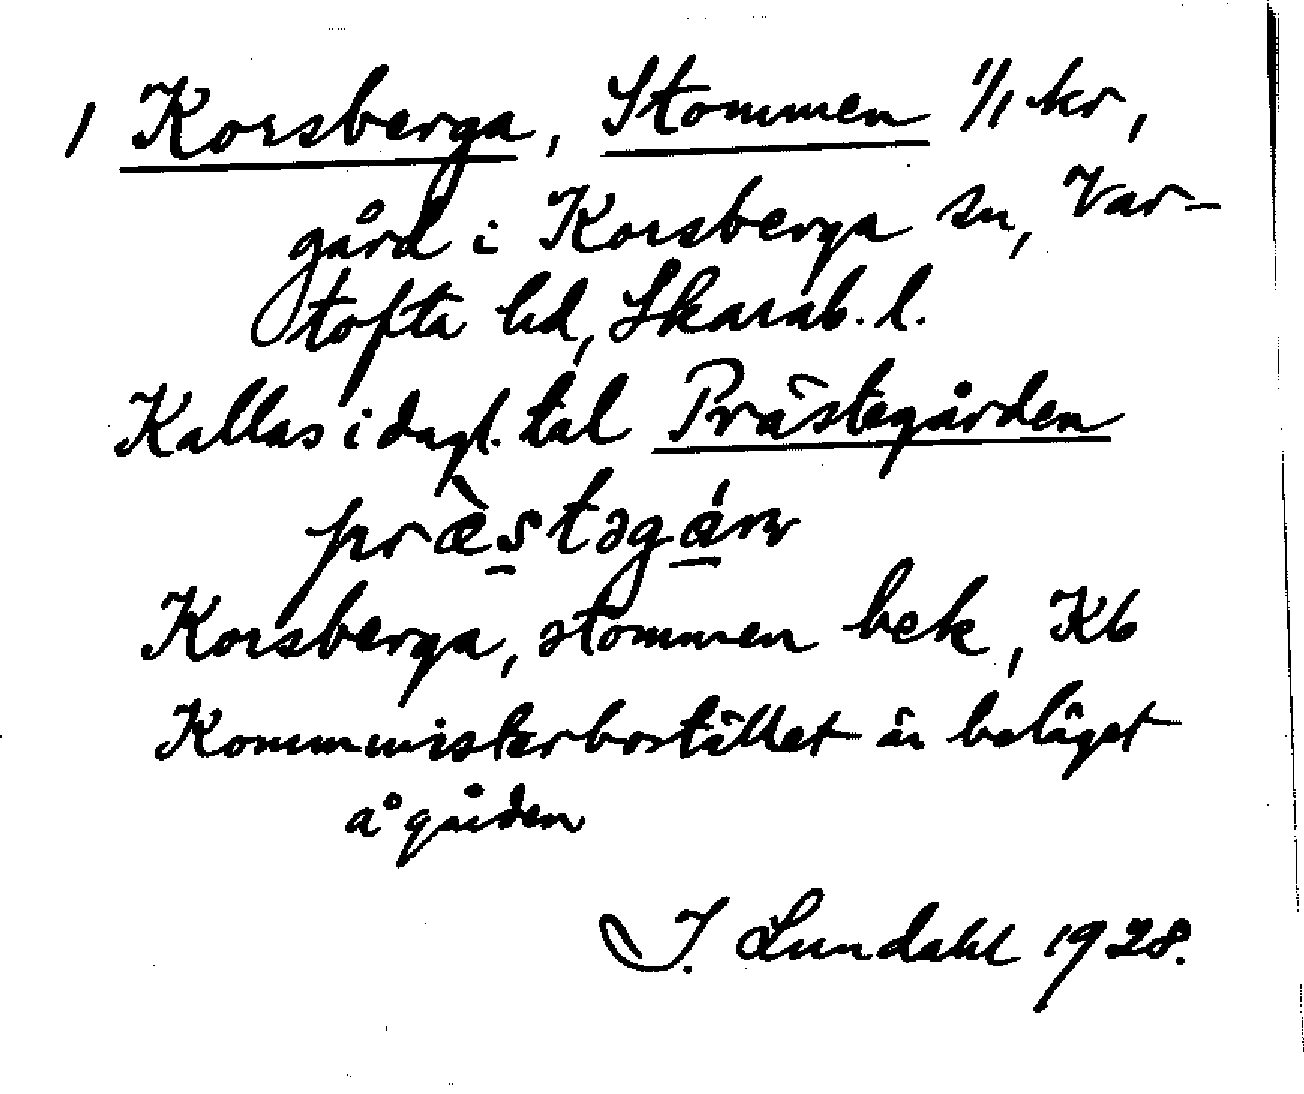 1 Korsberga, Stommen 1/1 kr,
gård i Korsberga sn, Var-
tofta hd, Skarab. l.
Kallas i dagl. tal Prästegården
præ̀stəgárn
Korsberga, stommen bek, Kb
Komministerbostället är beläget
å gården
I. Lundahl 1928.